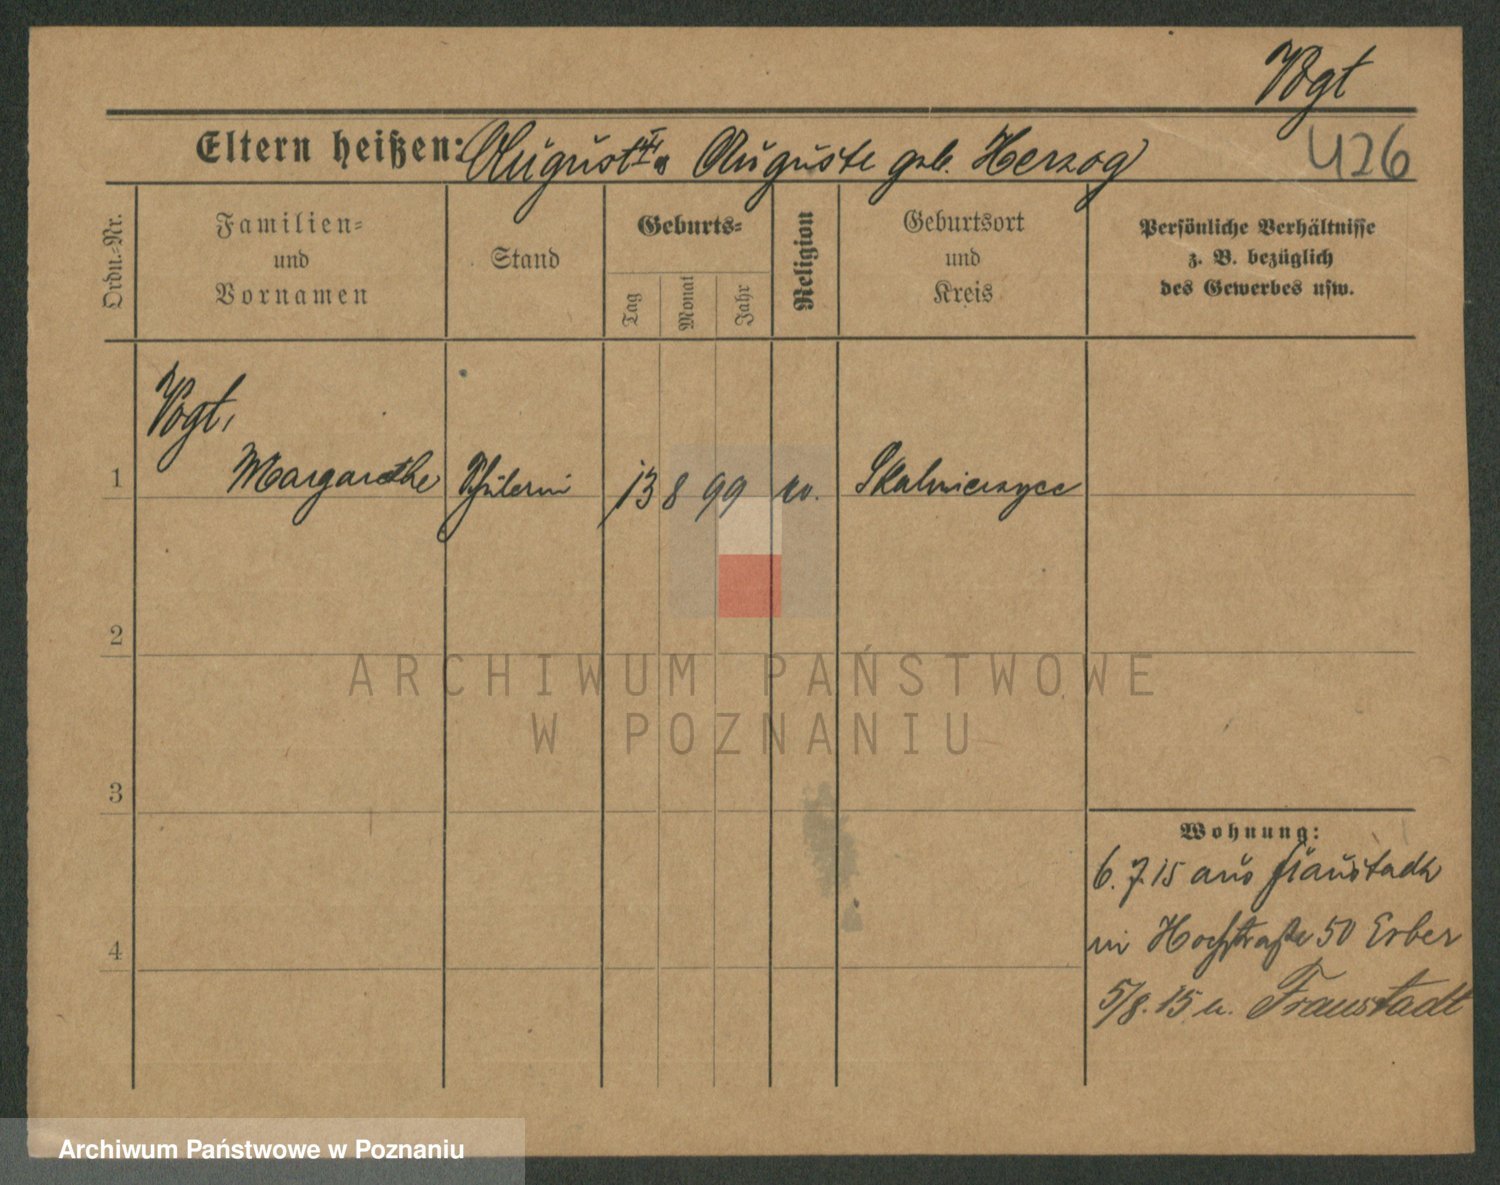 Vogt
Eltern heißen: August u Auguste geb. Herzog
426
Ordn.-Nr.
Familien-
und
Vornamen
Stand
Geburts-
Tag
Monat
Jahr
Religion
Geburtsort
und
Kreis
Persönliche Verhältnisse
z. B. bezüglich
des Gewerbes usw.
Vogt,
1 Margarethe Schülerin 13 8 99 ev. Skalmierzyce
2
ARCHIWUM PAŃSTWOWE
W POZNANIU
3
Wohnung:
6.7.15 aus Fraustadt
in Hochstraße 50 Erber
4
5/8.15 n. Fraustadt
Archiwum Państwowe w Poznaniu